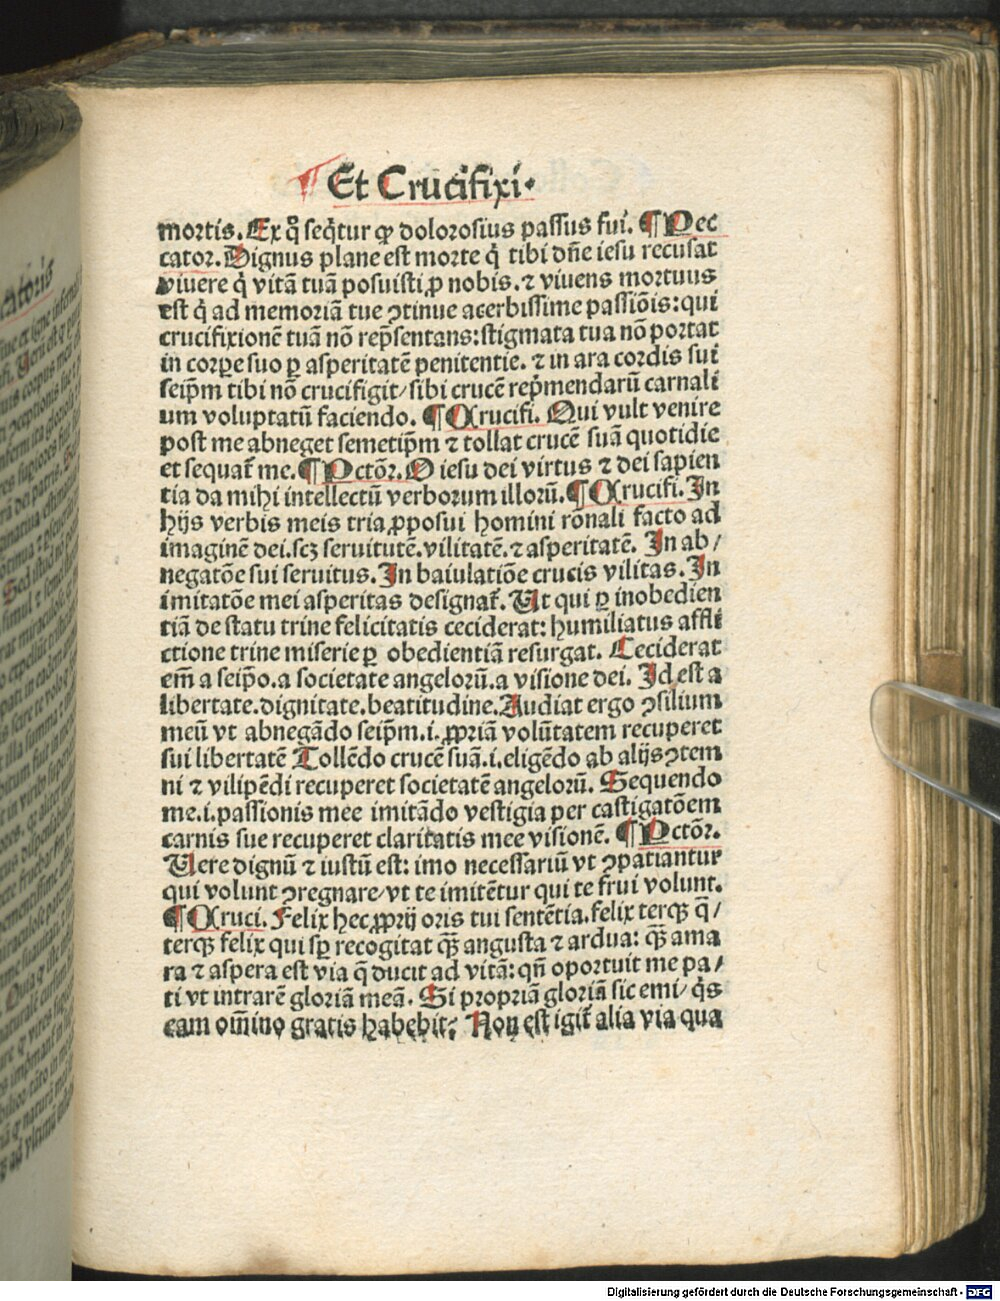 Et Crucifixi.
mortis. Ex q̊ seq̄tur ꝙ dolorosius passus fui. ¶ Pec
cator. Dignus plane est morte q̇ tibi dn̄e iesu recusat
viuere q̇ vitā tuā posuisti ꝓ nobis. ⁊ viuens mortuus
est q̇ ad memoriā tue ↄtinue acerbissime passiōis: qui
crucifixionē tuā nō rep̄sentans: stigmata tua nō portat
in corꝑe suo ꝑ asperitatē penitentie. ⁊ in ara cordis sui
seip̄m tibi nō crucifigit/ sibi crucē rep̄mendarū carnali
um voluptatū faciendo. ¶ Crucifi. Qui vult venire
post me abneget semetip̄m ⁊ tollat crucē suā quotidie
et sequat᷑ me. ¶ Pctōr. O iesu dei virtus ⁊ dei sapien
tia da mihi intellectū verborum illorū. ¶ Crucifi. In
hijs verbis meis tria ꝓposui homini rōnali facto ad
imaginē dei. scꝫ seruitutē. vilitatē. ⁊ asperitatē. In ab/
negatōe sui seruitus. In baiulatiōe crucis vilitas. In
imitatōe mei asperitas designat᷑. Ut qui ꝑ inobedien
tiā de statu trine felicitatis ceciderat: humiliatus affli
ctione trine miserie ꝑ obedientiā resurgat. Ceciderat
em̄ a seip̄o. a societate angelorū. a visione dei. Id est a
libertate. dignitate. beatitudine. Audiat ergo ↄsilium
meū vt abnegādo seip̄m .i. ꝓpriā volūtatem recuperet
sui libertatē Tollēdo crucē suā .i. eligēdo ab alijs ↄtem
ni ⁊ vilipēdi recuperet societatē angelorū. Sequendo
me .i. passionis mee imitādo vestigia per castigatōem
carnis sue recuperet claritatis mee visionē. ¶ Pctōr.
Uere dignū ⁊ iustū est: imo necessariū vt ↄpatiantur
qui volunt ↄregnare/ vt te imitētur qui te frui volunt.
¶ Cruci. Felix hec ꝓprij oris tui sentētia. felix terqꝫ q̄/
terqꝫ felix qui sꝑ recogitat qꝫ̄ angusta ⁊ ardua: qꝫ̄ ama
ra ⁊ aspera est via q̄ ducit ad vitā: qn̄ oportuit me pa/
ti vt intrarē gloriā meā. Si propriā gloriā sic emi/ q̇s
eam om̄ino gratis habebit? Non est igit᷑ alia via qua
Digitalisierung gefördert durch die Deutsche Forschungsgemeinschaft - DFG